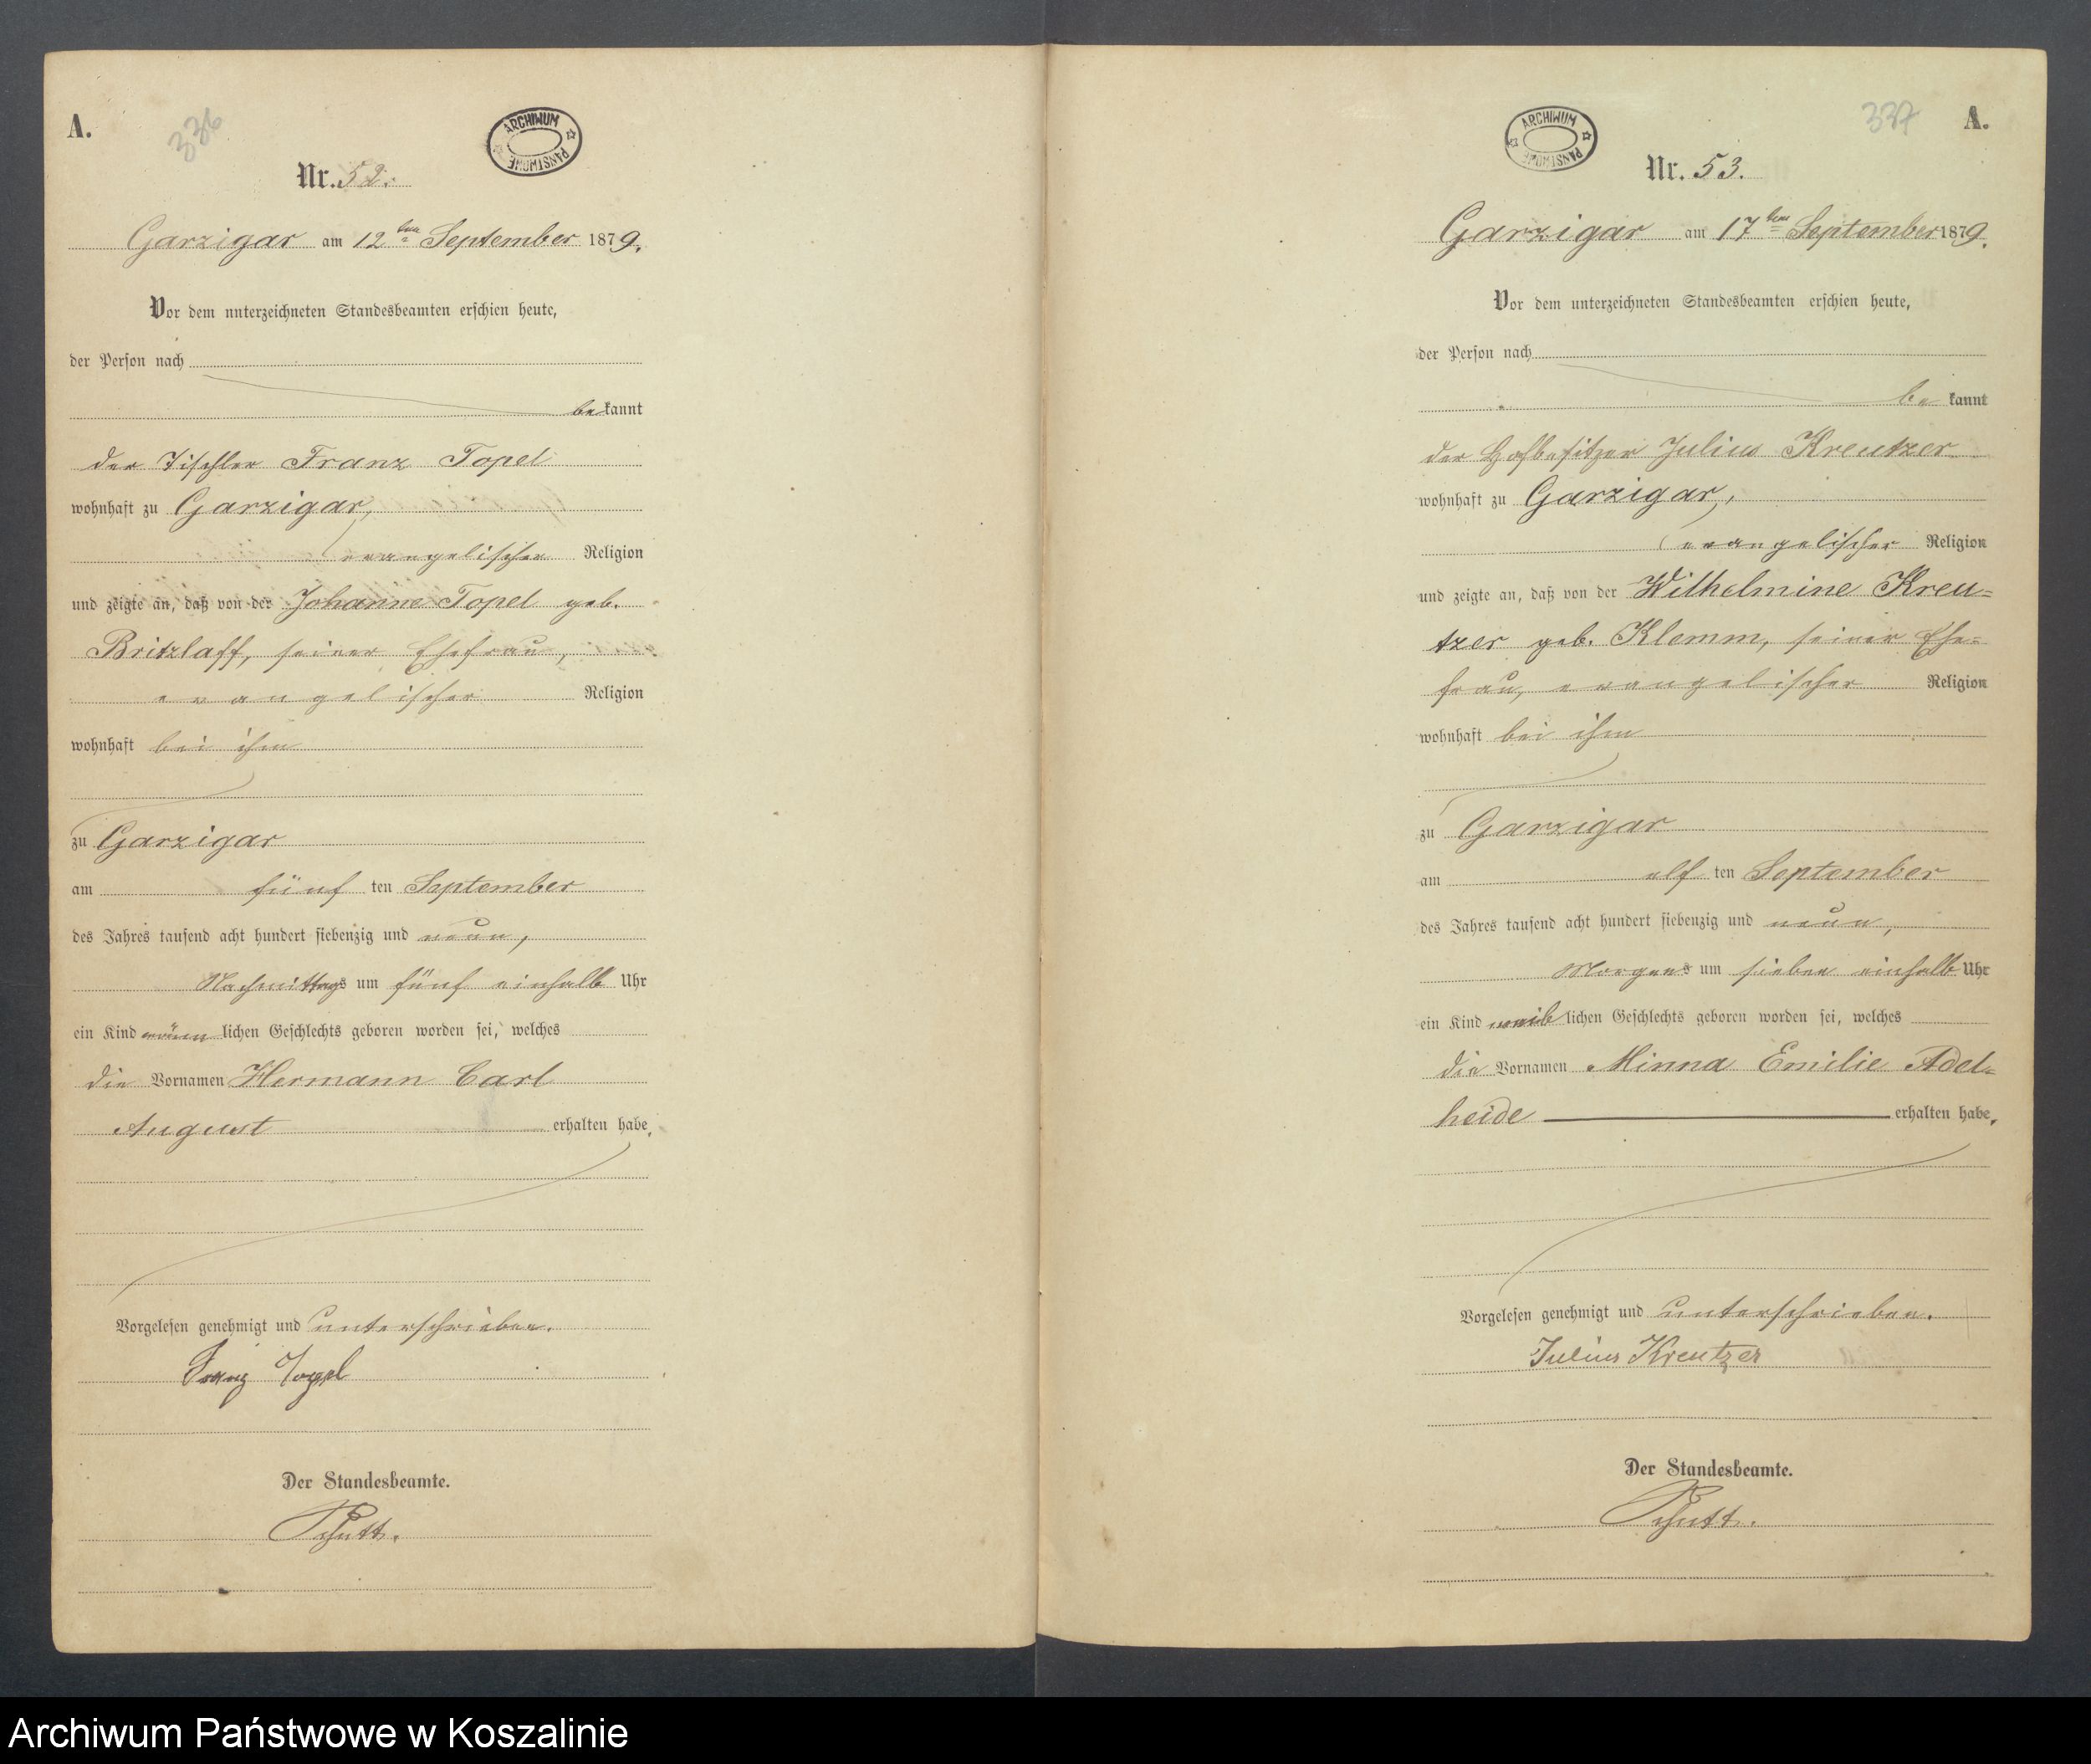 A.
336
ARCHIWUM PAŃSTWOWE
Nr. 52.
Garzigar am 12ten September 1879.
Vor dem unterzeichneten Standesbeamten erschien heute,
der Person nach
bekannt
der Tischler Franz Topel
wohnhaft zu Garzigar,
evangelischer Religion
und zeigte an, daß von der Johanne Topel geb.
Britzlaff, seiner Ehefrau,
evangelischer Religion
wohnhaft bei ihm
zu Garzigar
am fünf ten September
des Jahres tausend acht hundert siebenzig und neun,
Nachmittags um fünf einhalb Uhr
ein Kind männlichen Geschlechts geboren worden sei, welches
die Vornamen Hermann Carl
August erhalten habe.
Vorgelesen genehmigt und unterschrieben.
Franz Topel
Der Standesbeamte.
337
A.
ARCHIWUM PAŃSTWOWE
Nr. 53.
Garzigar am 17ten September 1879.
Vor dem unterzeichneten Standesbeamten erschien heute,
der Person nach
be kannt
der Hofbesitzer Julius Kreutzer
wohnhaft zu Garzigar,
evangelischer Religion
und zeigte an, daß von der Wilhelmine Kreu=
tzer geb. Klemm, seiner Ehe=
frau, evangelischer Religion
wohnhaft bei ihm
zu Garzigar
am elf ten September
des Jahres tausend acht hundert siebenzig und neun,
Morgens um sieben einhalb Uhr
ein Kind weiblichen Geschlechts geboren worden sei, welches
die Vornamen Minna Emilie Adel=
heide erhalten habe.
Vorgelesen genehmigt und unterschrieben.
Julius Kreutzer
Der Standesbeamte.
Archiwum Państwowe w Koszalinie